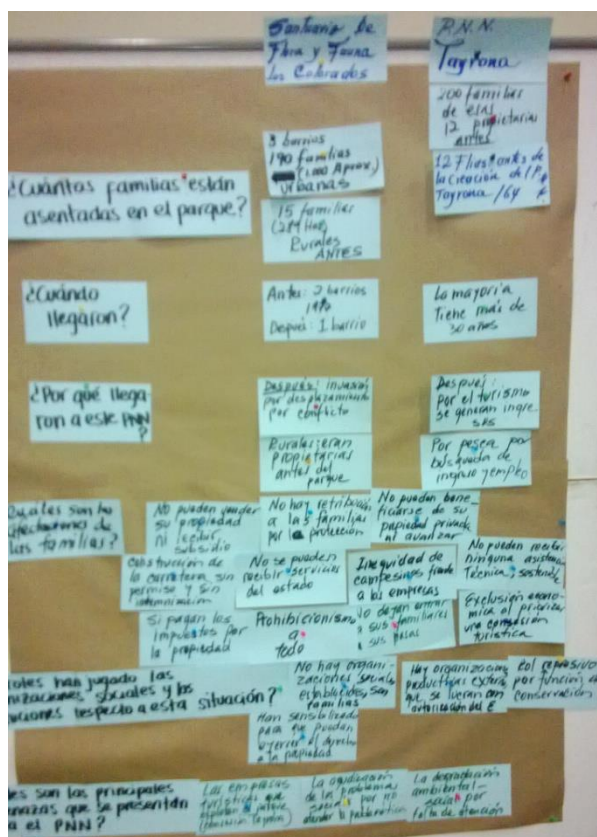 Santuario de
Flora y Fauna
Los Colorados
P.N.N.
Tayrona
200 familias
de esas
12 propietarias
antes
3 barrios
190 familias
(1.000 Aprox.)
urbanas
12 Flias antes de
la creación del P.
Tayrona /64
¿Cuántas familias están
asentadas en el parque?
15 familias
Rurales
ANTES
¿Cuándo
llegaron?
Antes: 2 barrios
Después: 1 barrio
La mayoría
tiene más de
30 años
¿Por qué llega-
ron a este PNN
?
Después: invasión
por desplazamiento
por conflicto
Después:
por el turismo
se generan ingre
sos
Rurales: eran
propietarias
antes del
parque
Por pesca por
búsqueda de
ingreso y empleo
cuáles son las
afectaciones de
las familias?
No pueden vender
su propiedad
ni recibir
subsidio
No hay retribución
a las familias
por la protección
No pueden bene-
ficiarse de su
propiedad privada
ni avanzar
Construcción de
la carretera sin
permiso y sin
indemnización
No se pueden
recibir servicios
del estado
Inequidad de
campesinos frente
a las empresas
No pueden recibir
ninguna asistencia
técnica, sostenible
Si pagan los
impuestos por
la propiedad
Prohibicionismo
a
todo
No dejan entrar
a sus familiares
a sus casas
Exclusión econó-
mica al priorizar
una concesión
turística
roles han jugado las
nizaciones sociales y las
uciones respecto a esta situación?
No hay organi-
zaciones sociales
establecidas, son
familias
Hay organizaciones
productivas
que se lucran con
autorización del E
Rol represivo
por función de
conservación
Han sensibilizado
para que puedan
ejercer el derecho
a la propiedad
es son las principales
nazas que se presentan
a el PNN?
Las empresas
turísticas que
explotan el parque
(Concesión Tayrona)
La agudización
de los problemas
sociales por no
atender la problemática
La degradación
ambiental-
social por
falta de atención